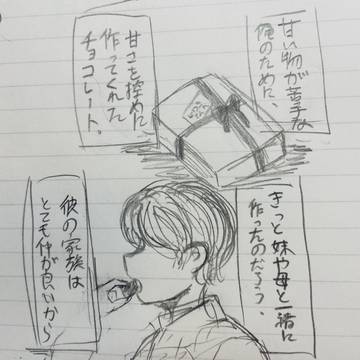 甘い物が苦手な
俺のために、
甘さを控めに
作ってくれた
チョコレート。
きっと妹や母と一緒に
作ったのだろう、
彼の家族は
とても仲が良いから